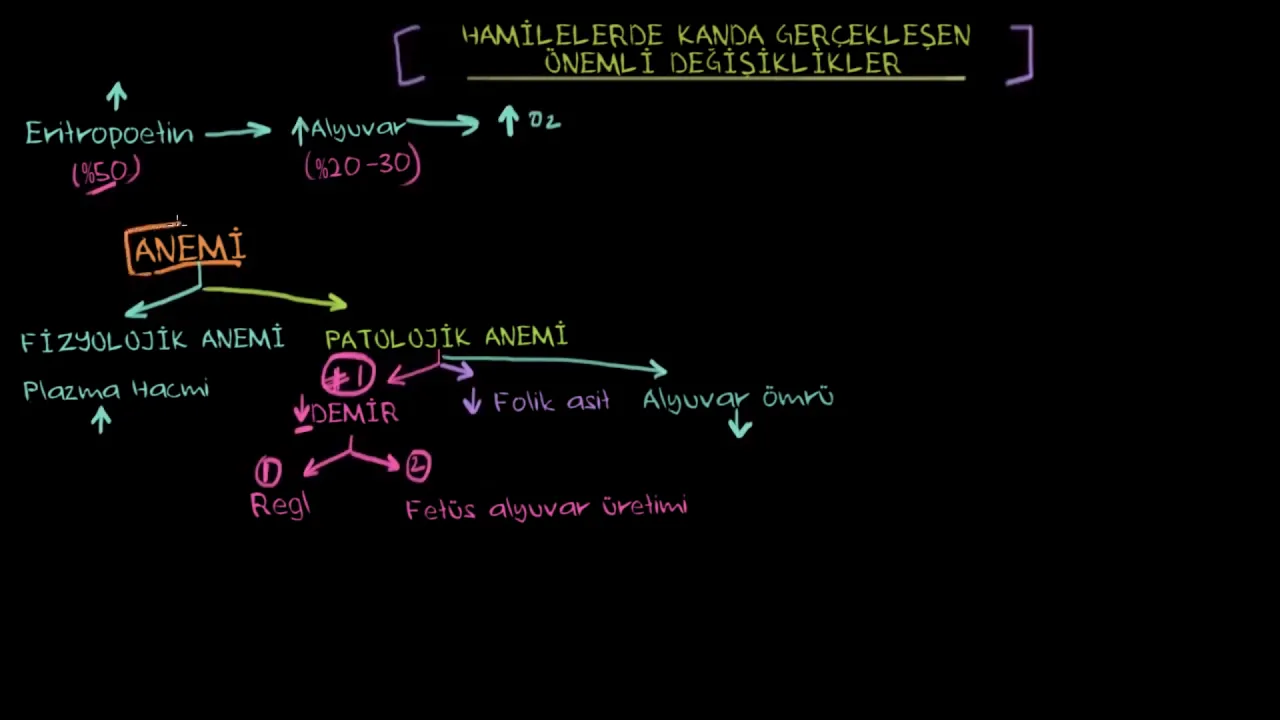 HAMİLELERDE KANDA GERÇEKLEŞEN
ÖNEMLİ DEĞİŞİKLİKLER
Eritropoetin → ↑ Alyuvar → ↑ O2
(%50) (%20-30)
ANEMİ
FİZYOLOJİK ANEMİ PATOLOJİK ANEMİ
Plazma Hacmi
#1
↓ DEMİR ↓ Folik asit Alyuvar ömrü
1 2
Regl Fetüs alyuvar üretimi